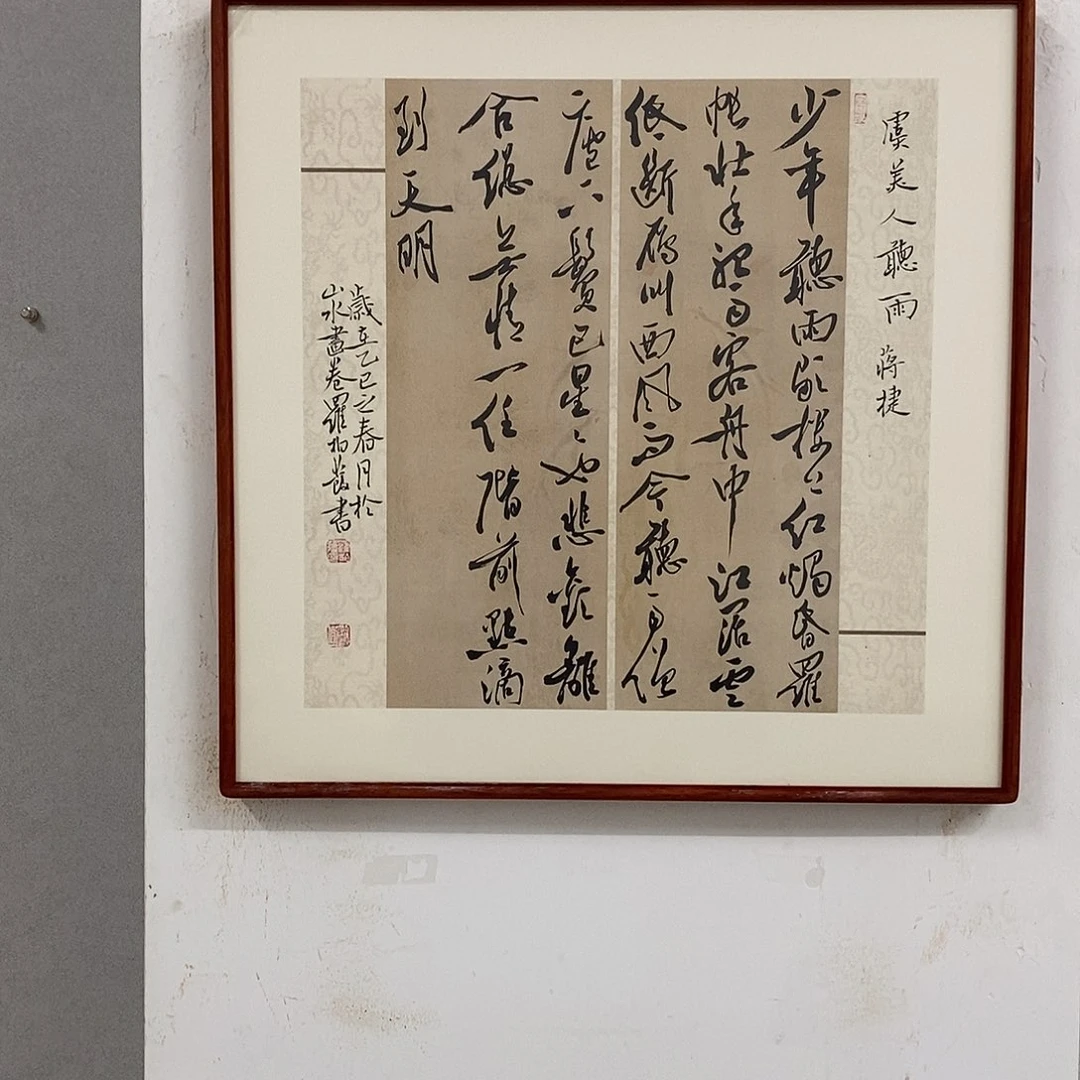 虞美人聽雨 蔣捷
少年聽雨歌樓上紅燭昏羅
帳壯年聽雨客舟中江闊雲
低斷雁叫西風而今聽雨僧
廬下鬢已星〻也悲歡離
合總無情一任階前點滴
到天明
歲在乙巳之春月於
山水畫卷羅柏書